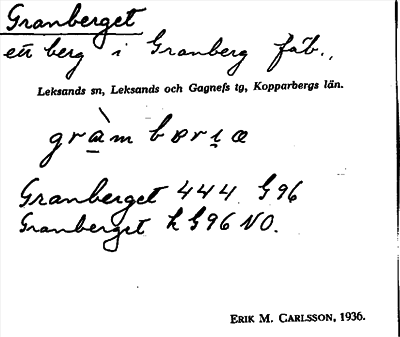 Granberget
ett berg i Granberg fäb.,
Leksands sn, Leksands och Gagnefs tg, Kopparbergs län.
gràm bærıæ
Granberget 444 G96
Granberget h G96 NO.
ERIK M. CARLSSON, 1936.